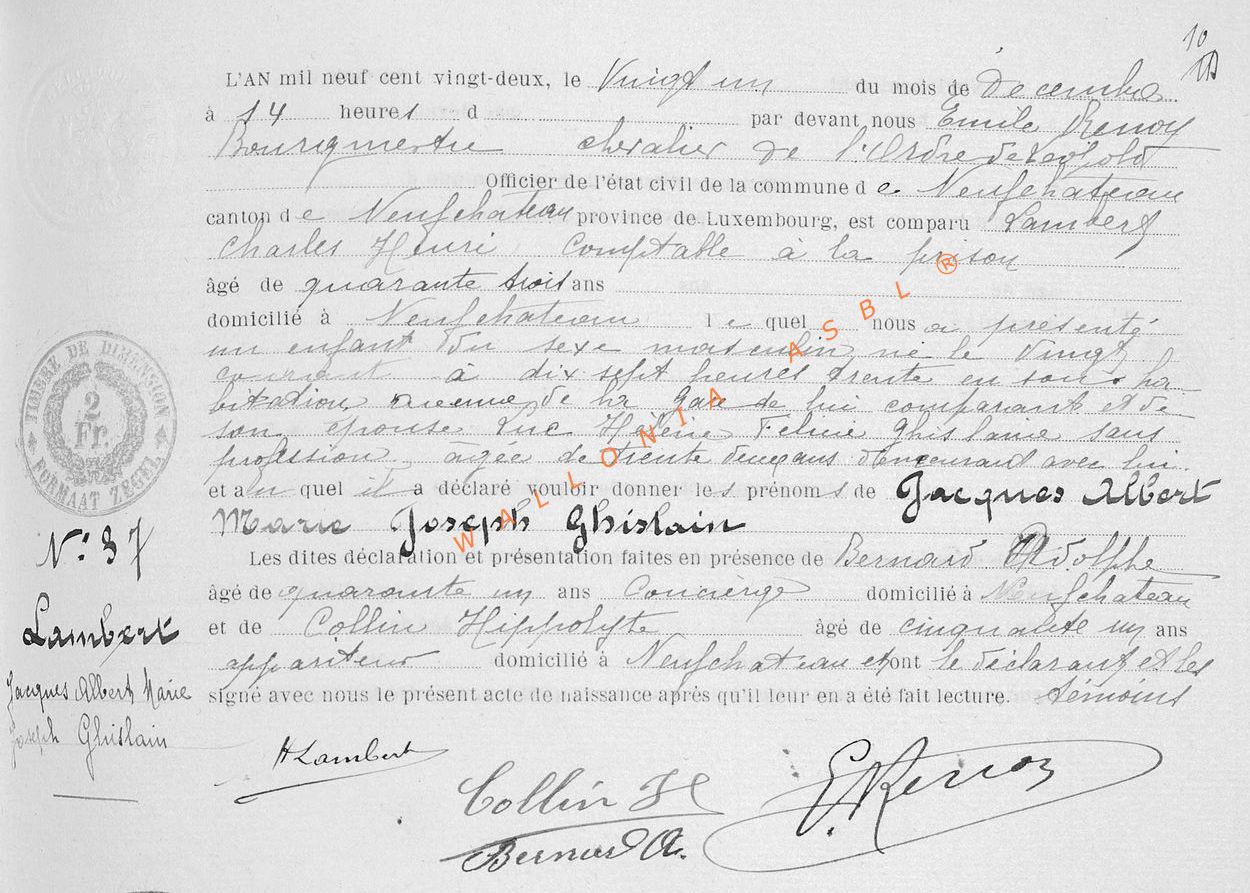 10
L'AN mil neuf cent vingt-deux, le Vingt un du mois de Décembre
à 14 heures d par devant nous Emile Renoy
Bourgmestre chevalier de l'Ordre de Léopold
Officier de l'état civil de la commune de Neufchateau
canton de Neufchateau province de Luxembourg, est comparu Lambert
Charles Henri comptable à la prison
âgé de quarante trois ans
domicilié à Neufchateau lequel nous a présenté
un enfant du sexe masculin, né le Vingt
courant à dix sept heures trente en son ha
bitation, avenue de la Gare de lui comparant et de
son épouse Luc Hélène Felicie Ghislaine sans
profession, âgée de trente deux ans demeurant avec lui
et au quel il a déclaré vouloir donner les prénoms de Jacques Albert
Marie Joseph Ghislain
Les dites déclaration et présentation faites en présence de Bernard Adolphe
âgé de quarante un ans Concierge domicilié à Neufchateau
et de Collin Hippolyte âgé de cinquante un ans
appariteur domicilié à Neufchateau et ont le déclarant et les
signé avec nous le présent acte de naissance après qu'il leur en a été fait lecture. témoins
TIMBRE DE DIMENSION
2
Fr.
FORMAAT ZEGEL
N: 37
Lambert
Jacques Albert Marie
Joseph Ghislain
H Lambert
Collin H
E. Renoy
Bernard A.
WALLONIA ASBL ®